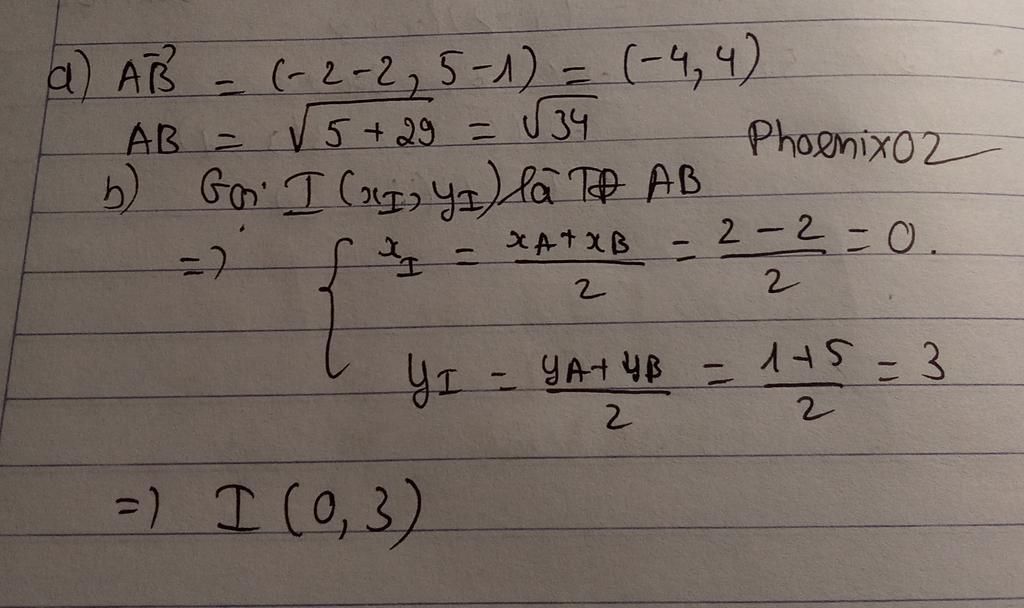 a) \vec{AB} = (-2-2, 5-1) = (-4, 4)
AB = √(5+29) = √34
Phoenix02
b) Gọi I (x_I, y_I) là TĐ AB
=> { x_I = (xA+xB)/2 = (2-2)/2 = 0.
y_I = (yA+yB)/2 = (1+5)/2 = 3
=> I (0, 3)